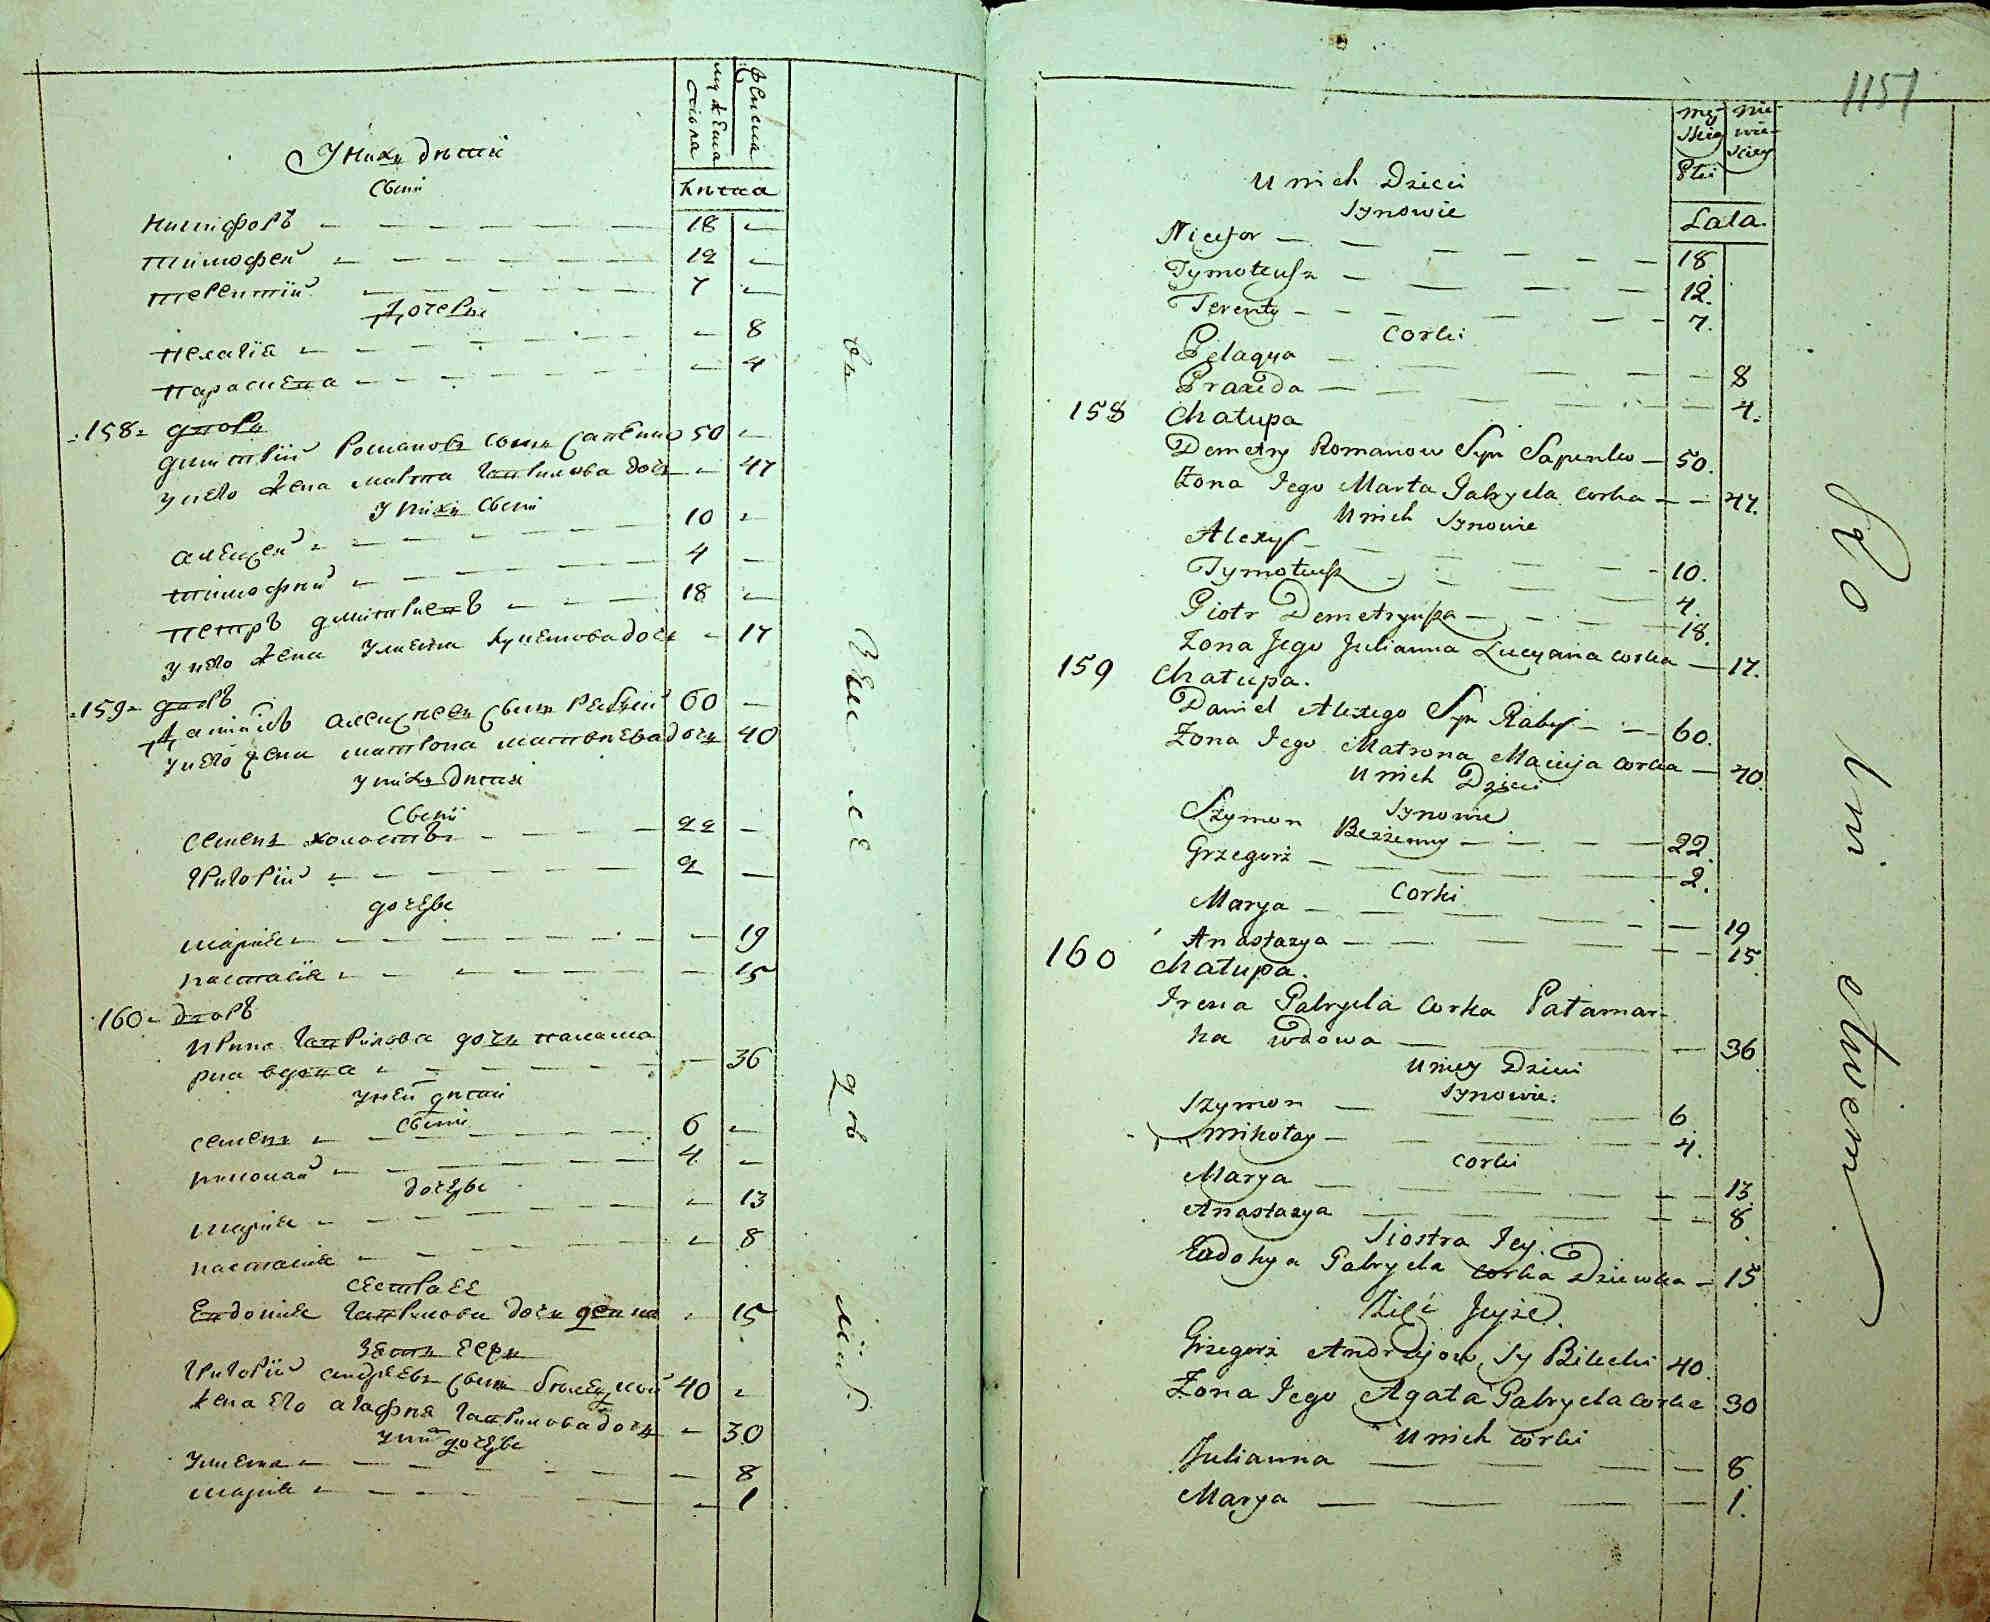 У нихъ дѣти
Сыни
мужеска
женска
пола
Лѣта
Никифоръ 18
Тимофей 12
Терентій 7
Дочери
Пелагія 8
Параскева 4
158 дворъ
Дмитрій Романовъ сынъ Сапенко 50
У него жена Марта Гаврилова дочь 47
У нихъ сыни
Алексей 10
Тимофей 4
Петръ Дмитріевъ 18
У него жена Улиена дочь 17
159 дворъ
Даніилъ Алексѣевъ сынъ Рабый 60
У него жена Матрона Матвѣева дочь 40
У нихъ дѣти
Сыни
Семенъ холостъ 22
Григорій 2
дочери
Марія 19
Настасія 15
160 дворъ
Ирина Гаврилова дочь Панама
рка вдова 36
У ней дѣти
сыни
Семенъ 6
Николай 4
дочери
Марія 13
Настасія 8
сестра ее
Евдокія Гаврилова дочь девка 15
Зять ее же
Григорій Андреевъ сынъ Билецкій 40
Жена его Агафия Гаврилова дочь 30
У них дочери
Улиена 8
Марія 1
1151
męzkiey
niewieściey
Płci
Lata.
U nich Dzieci
Synowie
Nicefor 18.
Tymoteusz 12.
Terenty 7.
Corki
Pelagya 8
Praxeda 4.
158 Chałupa
Demetry Romanow Syn Sapenko 50.
Żona Jego Marta Gabryela corka 47.
U nich Synowie
Alexy 10.
Tymoteusz 4.
Piotr Demetryusza 18.
Żona Jego Julianna Lucyana corka 17.
159 Chałupa.
Daniel Alexego Syn Rabyj 60.
Żona Jego Matrona Macieja corka 40
U nich Dzieci
Synowie
Szymon Bezżenny 22.
Grzegorz 2.
Corki
Marya 19
Anastazya 15
160 Chałupa.
Irena Gabryela Corka Pałamar-
ka wdowa 36
U niey Dzieci
Synowie.
Szymon 6
Mikołay 4.
Corki
Marya 13
Anastazya 8
Siostra Jey.
Eudokya Gabryela corka Dziewka 15
Zięć Jeyże.
Grzegorz Andrzejow Sy Bilecki 40.
Żona Jego Agata Gabryela corka 30
U nich corki
Julianna 8
Marya 1.